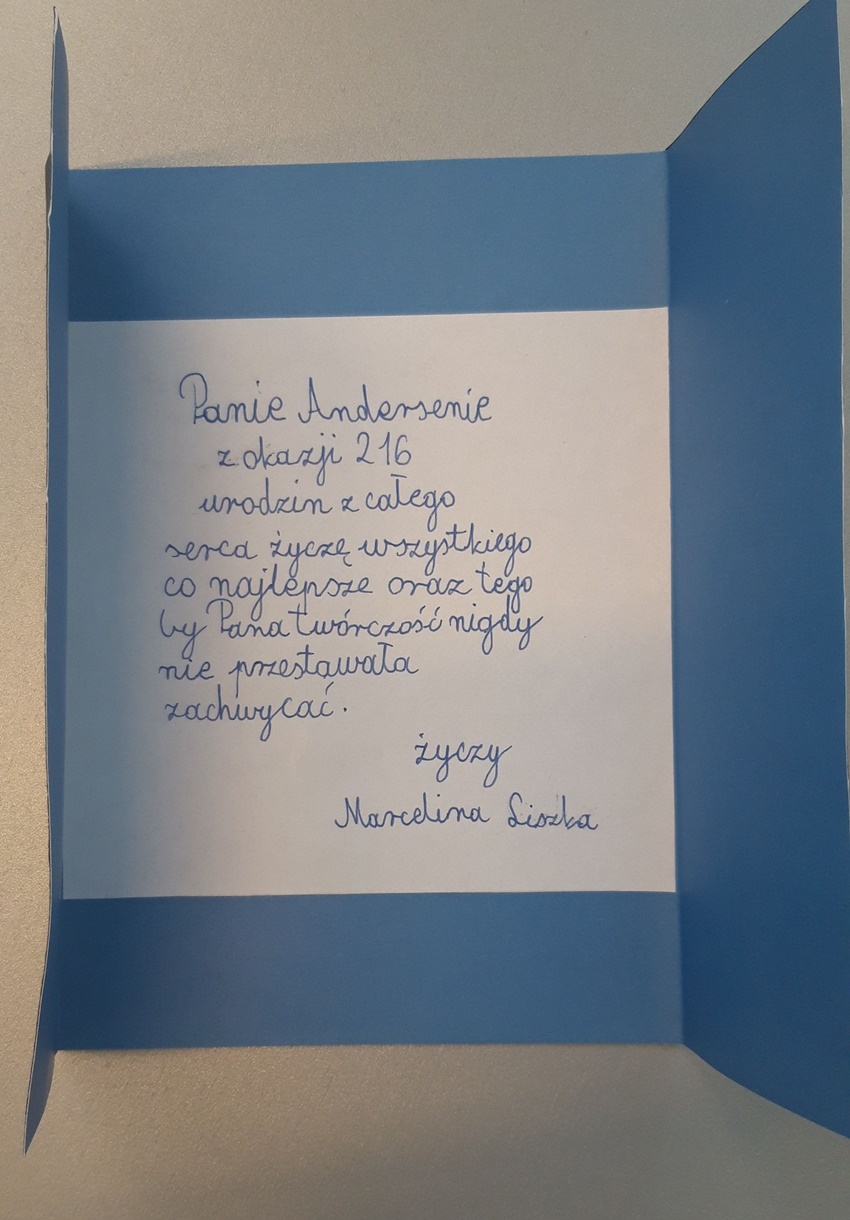 Panie Andersenie
z okazji 216
urodzin z całego
serca życzę wszystkiego
co najlepsze oraz tego
by Pana twórczość nigdy
nie przestawała
zachwycać.
życzy
Marcelina Liszka